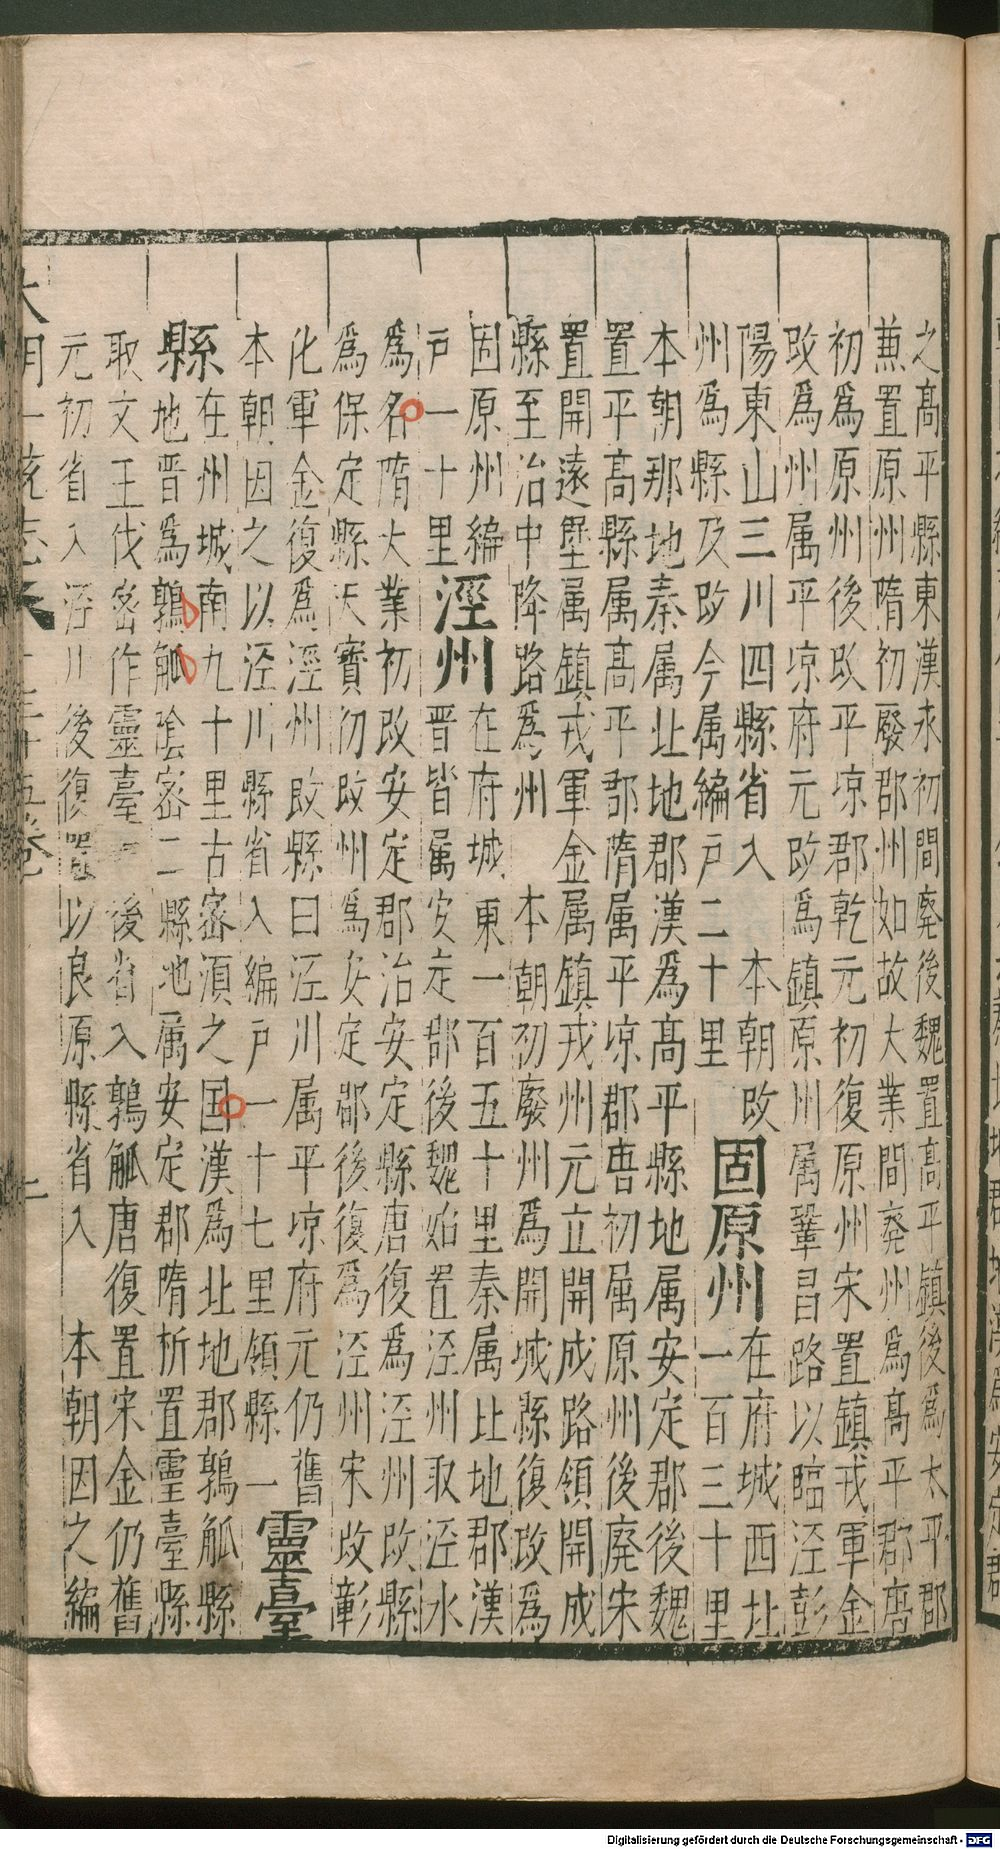 之高平縣東漢永初間廢後魏置高平鎮後爲太平郡
兼置原州隋初廢郡州如故大業間廢州爲高平郡唐
初爲原州後改平凉郡乾元初復原州宋置鎮戎軍金
改爲州属平凉府元改爲鎮原州属鞏昌路以臨涇彭
陽東山三川四縣省入 本朝改
州爲縣及改今属編户二十里
固原州
在府城西北
一百三十里
本朝那地秦属北地郡漢爲高平縣地属安定郡後魏
置平高縣属高平郡隋属平凉郡唐初属原州後廢宋
置開遠堡属鎮戎軍金属鎮戎州元立開成路領開成
縣至治中降路爲州 本朝初廢州爲開城縣復改爲
固原州編
户一十里
涇州
在府城東一百五十里秦属北地郡漢
晋皆属安定郡後魏始置涇州取涇水
爲名隋大業初改安定郡治安定縣唐復爲涇州改縣
爲保定縣天寶初改州爲安定郡後復爲涇州宋改彰
化軍金復爲涇州改縣曰涇川属平凉府元仍舊
本朝因之以涇川縣省入編户一十七里領縣一
靈臺
縣
在州城南九十里古密湏之国漢爲北地郡鶉觚縣
地晋爲鶉觚陰密二縣地属安定郡隋析置靈臺縣
取文王伐密作靈臺後省入鶉觚唐復置宋金仍舊
元初省入涇川後復置以良原縣省入 本朝因之編
大明一統志卷三十五卷
Digitalisierung gefördert durch die Deutsche Forschungsgemeinschaft - DFG